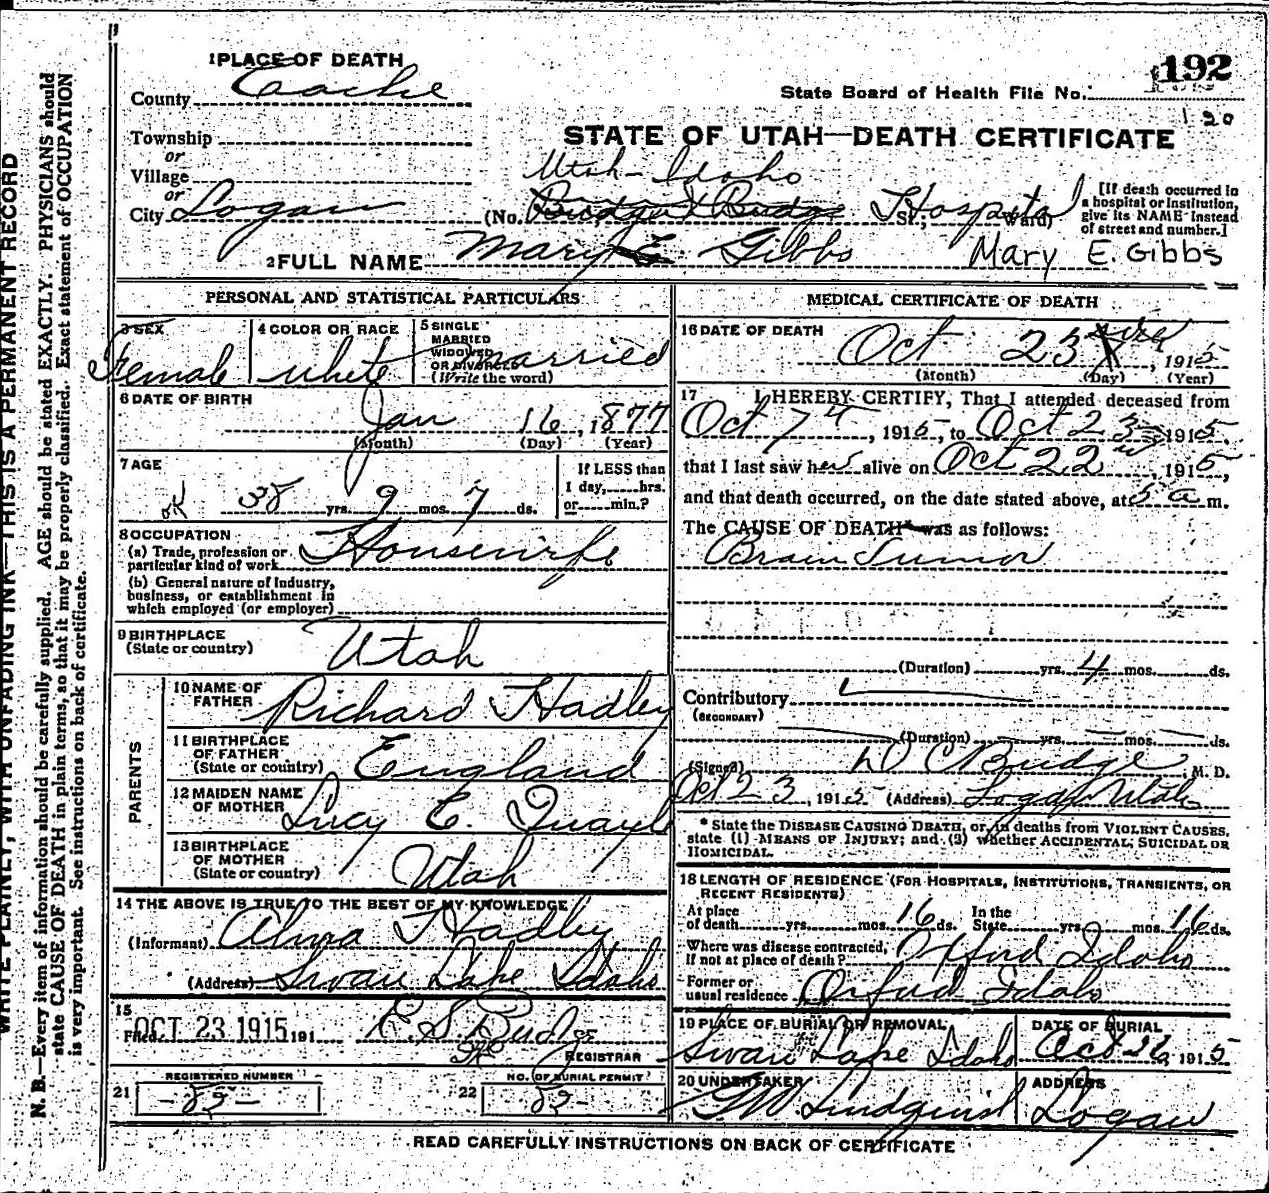 192
1 PLACE OF DEATH
County Cache
State Board of Health File No.
120
Township
or
Village
or
City Logan
STATE OF UTAH—DEATH CERTIFICATE
Utah-Idaho
(No. Budge & Budge Hospital St., Ward)
[If death occurred in
a hospital or institution,
give its NAME instead
of street and number.]
2 FULL NAME Mary E Gibbs Mary E. Gibbs
PERSONAL AND STATISTICAL PARTICULARS
3 SEX Female
4 COLOR OR RACE white
5 SINGLE
MARRIED
WIDOWED
OR DIVORCED
(Write the word) married
6 DATE OF BIRTH
Jan 16, 1877
(Month) (Day) (Year)
7 AGE
ok 38 yrs. 9 mos. 7 ds.
If LESS than
1 day,......hrs.
or......min.?
8 OCCUPATION
(a) Trade, profession or
particular kind of work Housewife
(b) General nature of Industry,
business, or establishment in
which employed (or employer)
9 BIRTHPLACE
(State or country) Utah
PARENTS
10 NAME OF
FATHER Richard Hadley
11 BIRTHPLACE
OF FATHER
(State or country) England
12 MAIDEN NAME
OF MOTHER Lucy E. Quayl
13 BIRTHPLACE
OF MOTHER
(State or country) Utah
14 THE ABOVE IS TRUE TO THE BEST OF MY KNOWLEDGE
(Informant) Alma Hadley
(Address) Swan Lake Idaho
15
Filed OCT 23 1915 191
R. S. Budge
REGISTRAR
REGISTERED NUMBER
21
NO. OF BURIAL PERMIT
22
MEDICAL CERTIFICATE OF DEATH
16 DATE OF DEATH
Oct 23, 1915
(Month) (Day) (Year)
17 I HEREBY CERTIFY, That I attended deceased from
Oct 7th, 1915, to Oct 23 1915.
that I last saw her alive on Oct 22, 1915,
and that death occurred, on the date stated above, at 5 a m.
The CAUSE OF DEATH* was as follows:
Brain Tumor
(Duration) yrs. 4 mos. ds.
Contributory
(SECONDARY)
(Duration) yrs. mos. ds.
(Signed) D C Budge, M. D.
Oct 23, 1915 (Address) Logan Utah
* State the DISEASE CAUSING DEATH, or, in deaths from VIOLENT CAUSES,
state (1) MEANS OF INJURY; and (2) whether ACCIDENTAL, SUICIDAL OR
HOMICIDAL.
18 LENGTH OF RESIDENCE (FOR HOSPITALS, INSTITUTIONS, TRANSIENTS, OR
RECENT RESIDENTS)
At place
of death yrs. mos. 16 ds.
In the
State yrs. mos. 16 ds.
Where was disease contracted,
if not at place of death? Oxford Idaho
Former or
usual residence Oxford Idaho
19 PLACE OF BURIAL OR REMOVAL
Swan Lake Idaho
DATE OF BURIAL
Oct 26, 1915
20 UNDERTAKER
Lindquist
ADDRESS
Logan
READ CAREFULLY INSTRUCTIONS ON BACK OF CERTIFICATE
WRITE PLAINLY, WITH UNFADING INK—THIS IS A PERMANENT RECORD
N. B.—Every item of information should be carefully supplied. AGE should be stated EXACTLY. PHYSICIANS should
state CAUSE OF DEATH in plain terms, so that it may be properly classified. Exact statement of OCCUPATION
is very important. See instructions on back of certificate.